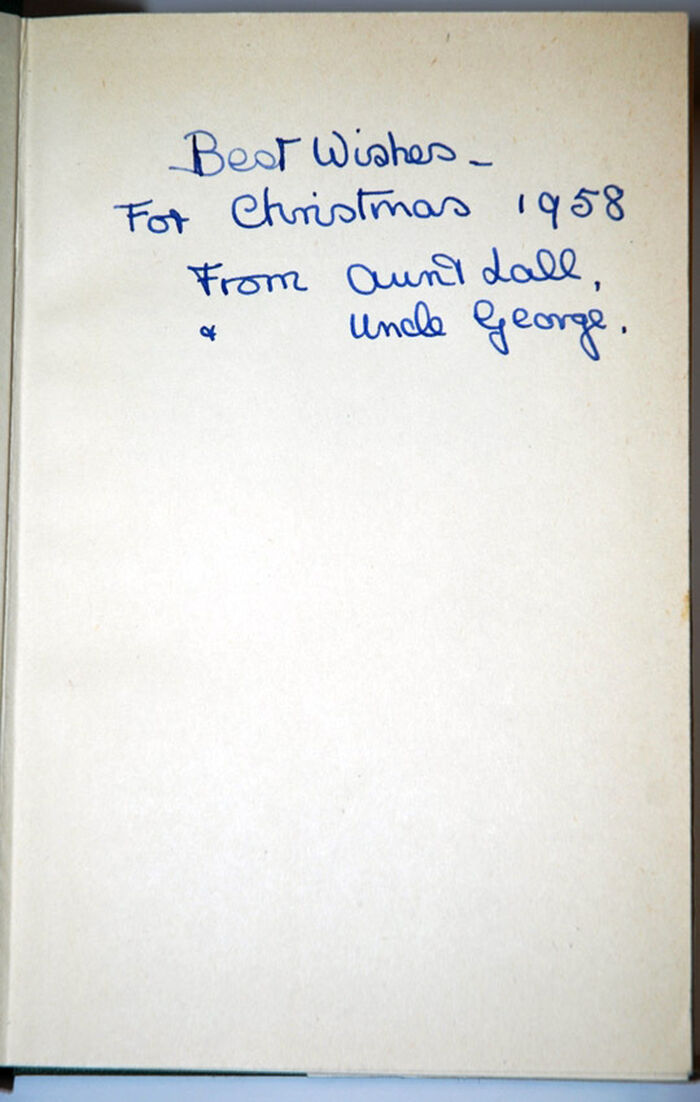 Best Wishes -
For Christmas 1958
From Aunt Lall,
& Uncle George.